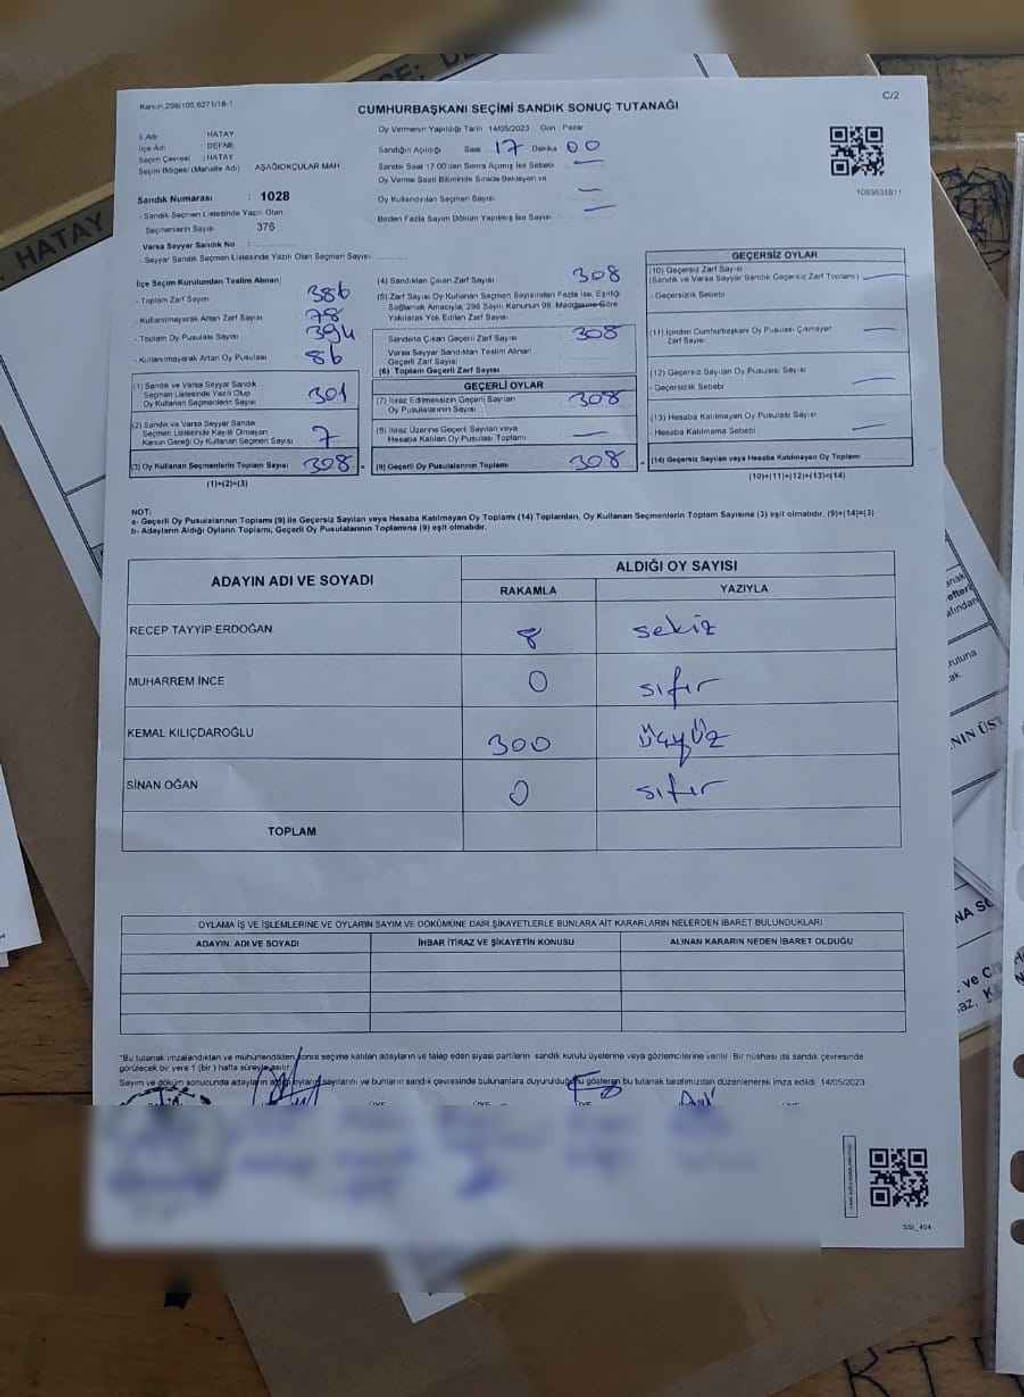 Kanun 298/105,6271/18-1
C/2
CUMHURBAŞKANI SEÇİMİ SANDIK SONUÇ TUTANAĞI
İl Adı : HATAY
İlçe Adı : DEFNE
Seçim Çevresi : HATAY
Seçim Bölgesi (Mahalle Adı) AŞAĞIOKÇULAR MAH.
Sandık Numarası : 1028
- Sandık Seçmen Listesinde Yazılı Olan
Seçmenlerin Sayısı 376
Varsa Seyyar Sandık No :
- Seyyar Sandık Seçmen Listesinde Yazılı Olan Seçmen Sayısı
Oy Vermenin Yapıldığı Tarih 14/05/2023 Gün : Pazar
Sandığın Açıldığı Saat 17 Dakika 00
Sandık Saat 17.00'dan Sonra Açılmış İse Sebebi —
Oy Verme Saati Bitiminde Sırada Bekleyen ve
Oy Kullandırılan Seçmen Sayısı —
Birden Fazla Sayım Döküm Yapılmış İse Sayısı —
İlçe Seçim Kurulundan Teslim Alınan;
- Toplam Zarf Sayısı 386
- Kullanılmayarak Artan Zarf Sayısı 78
- Toplam Oy Pusulası Sayısı 394
- Kullanılmayarak Artan Oy Pusulası 86
(1) Sandık ve Varsa Seyyar Sandık
Seçmen Listesinde Yazılı Olup
Oy Kullanan Seçmenlerin Sayısı 301
(2) Sandık ve Varsa Seyyar Sandık
Seçmen Listesinde Kayıtlı Olmayan
Kanun Gereği Oy Kullanan Seçmen Sayısı 7
(3) Oy Kullanan Seçmenlerin Toplam Sayısı 308
(1)+(2)=(3)
(4) Sandıktan Çıkan Zarf Sayısı 308
(5) Zarf Sayısı Oy Kullanan Seçmen Sayısından Fazla İse, Eşitliği
Sağlamak Amacıyla, 298 Sayılı Kanunun 98. Maddesine Göre
Yakılarak Yok Edilen Zarf Sayısı
Sandıkta Çıkan Geçerli Zarf Sayısı 308
Varsa Seyyar Sandıktan Teslim Alınan
Geçerli Zarf Sayısı
(6) Toplam Geçerli Zarf Sayısı
GEÇERLİ OYLAR
(7) İtiraz Edilmeksizin Geçerli Sayılan
Oy Pusulalarının Sayısı 308
(8) İtiraz Üzerine Geçerli Sayılan veya
Hesaba Katılan Oy Pusulası Toplamı —
(9) Geçerli Oy Pusulalarının Toplamı 308
GEÇERSİZ OYLAR
(10) Geçersiz Zarf Sayısı
(Sandık ve Varsa Seyyar Sandık Geçersiz Zarf Toplamı) —
- Geçersizlik Sebebi
(11) İçinden Cumhurbaşkanı Oy Pusulası Çıkmayan
Zarf Sayısı —
(12) Geçersiz Sayılan Oy Pusulası Sayısı
- Geçersizlik Sebebi —
(13) Hesaba Katılmayan Oy Pusulası Sayısı
- Hesaba Katılmama Sebebi —
(14) Geçersiz Sayılan veya Hesaba Katılmayan Oy Toplamı
(10)+(11)+(12)+(13)=(14)
NOT:
a- Geçerli Oy Pusulalarının Toplamı (9) ile Geçersiz Sayılan veya Hesaba Katılmayan Oy Toplamı (14) Toplamları, Oy Kullanan Seçmenlerin Toplam Sayısına (3) eşit olmalıdır. (9)+(14)=(3)
b- Adayların Aldığı Oyların Toplamı, Geçerli Oy Pusulalarının Toplamına (9) eşit olmalıdır.
ADAYIN ADI VE SOYADI
ALDIĞI OY SAYISI
RAKAMLA YAZIYLA
RECEP TAYYİP ERDOĞAN 8 sekiz
MUHARREM İNCE 0 sıfır
KEMAL KILIÇDAROĞLU 300 üçyüz
SİNAN OĞAN 0 sıfır
TOPLAM
OYLAMA İŞ VE İŞLEMLERİNE VE OYLARIN SAYIM VE DÖKÜMÜNE DAİR ŞİKAYETLERLE BUNLARA AİT KARARLARIN NELERDEN İBARET BULUNDUKLARI
ADAYIN ADI VE SOYADI İHBAR İTİRAZ VE ŞİKAYETİN KONUSU ALINAN KARARIN NEDEN İBARET OLDUĞU
"Bu tutanak imzalandıktan ve mühürlendikten sonra seçime katılan adayların ve talep eden siyasi partilerin sandık kurulu üyelerine veya gözlemcilerine verilir. Bir nüshası da sandık çevresinde
görülecek bir yere 1 (bir) hafta süreyle asılır.
Sayım ve döküm sonucunda adayların aldığı oyların sayılarını ve bunların sandık çevresinde bulunanlara duyurulduğunu gösteren bu tutanak tarafımızdan düzenlenerek imza edildi. 14/05/2023
HATAY
NIN ÜST
NA SE